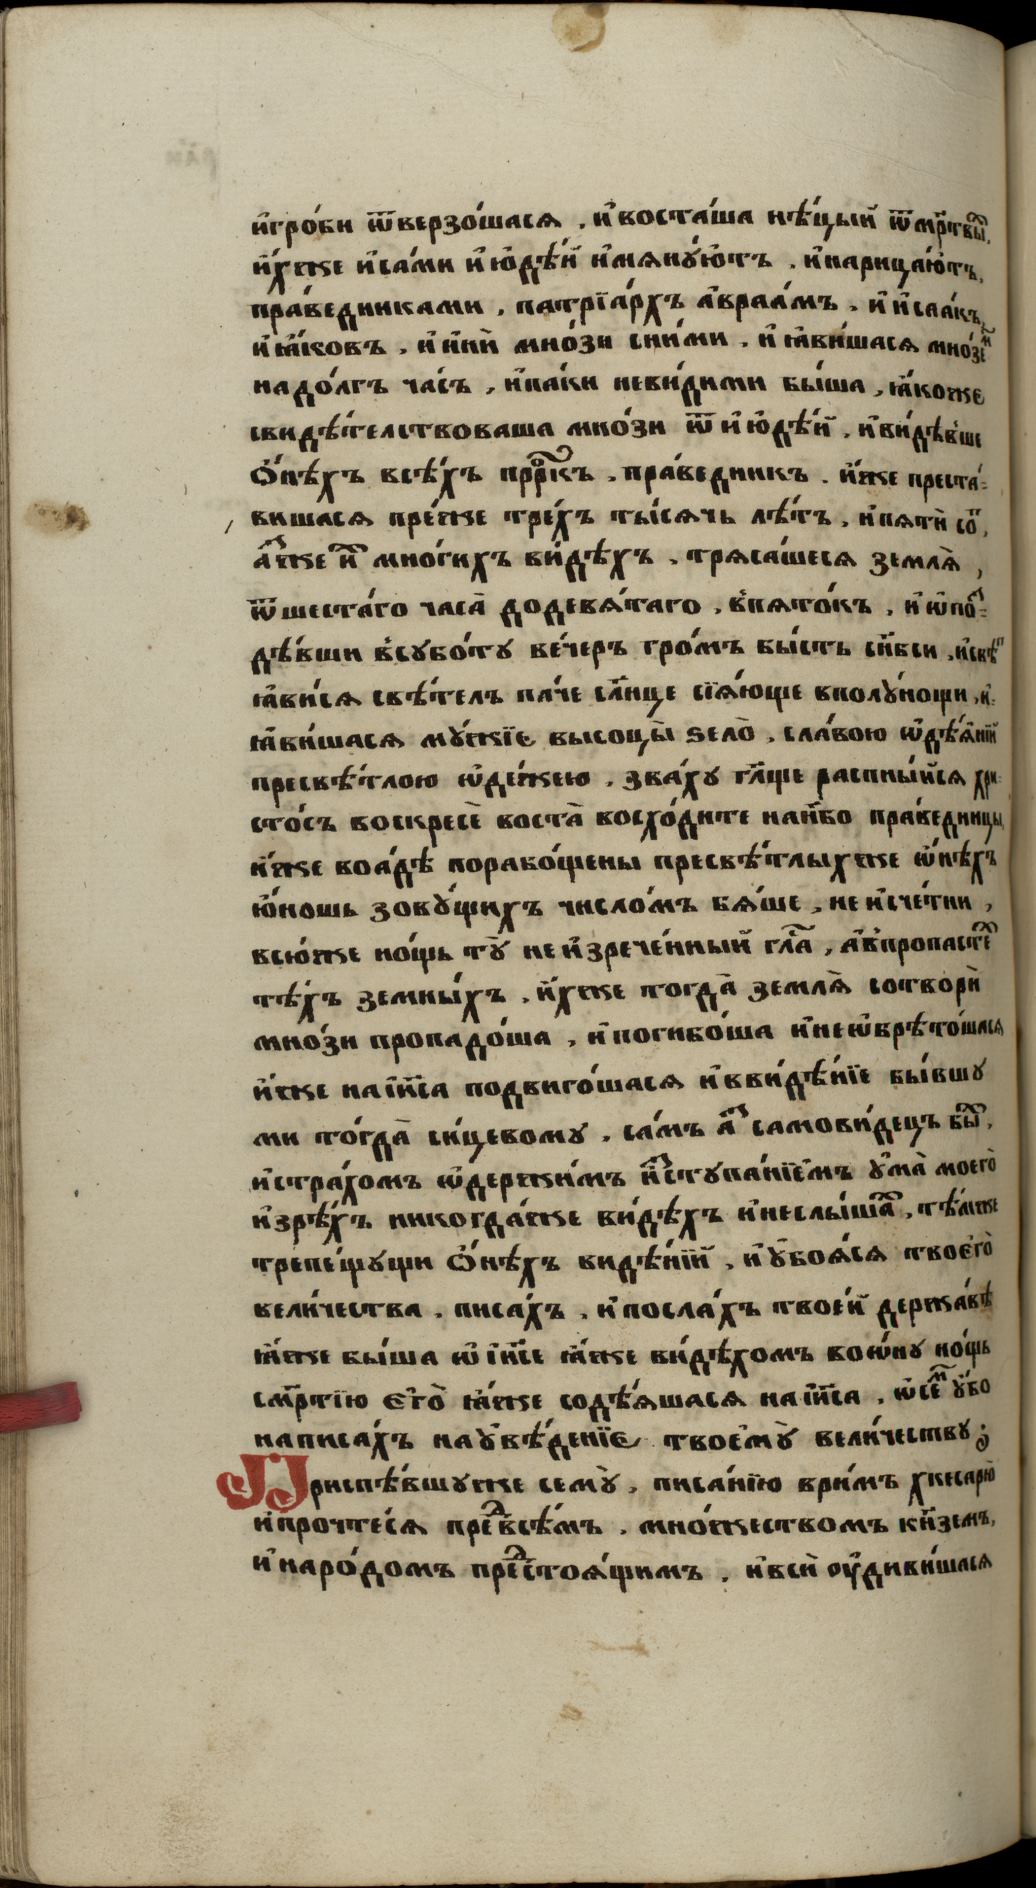 и҆гро́би ѿверзо́шася , и҆воста́ша нѣ́цыи҆ ѿмр҃твы́,
и҆́хже и҆са́ми и҆ ю҆дѣ́и҆ и҆мянꙋ́ютъ . и҆нарица́ютъ,
пра́ведниками , патрїа́рхъ а҆враа́мъ , и҆ и҆саа́къ,
и҆ ꙗ҆́ковъ , и҆ и҆нѝ мно́зи сни́ми , и҆ ꙗ҆ви́шася мно́зем
на до́лгъ ча́съ , и҆па́ки неви́дими бы́ша , ꙗ҆́коже
свидѣ́тельствоваша мно́зи ѿ и҆ ю҆дѣ́и҆ , и҆ви́дѣвше
ѻ҆нѣ́хъ всѣ́хъ прⷪ҇ркъ , пра́ведникъ . и҆́же преста́-
вишася пре́жде тре́хъ ты́сящь лѣ́тъ , и҆пятѝ со́т,
а҆́зже и҆ мно́гихъ ви́дѣхъ , тряса́шеся земля̀ ,
ѿ шеста́го часа̀ додевя́таго , в̾пято́къ , и҆ ѡ҆по-
дѣ́вши в̾сꙋбо́тꙋ ве́черъ гро́мъ бы́сть с нб҃си , и҆свѣт
ꙗ҆ви́ся свѣ́телъ па́че сл҃нце сїя́юще вполꙋ́нощи , и҆-
ꙗ҆ви́шася мꙋ́жїе высоцы̀ ѕело̀ , сла́вою ѡ҆дѣ́янїи
пресвѣ́тлою ѡ҆де́жею , зва́хꙋ гл҃ще распны́йся хри-
сто́съ воскресѐ воста̀ восхо́дите на нб҃о пра́ведницы,
и҆́же во а́дѣ порабо́щены пресвѣ́тлыхже ѡ҆нѣ́хъ
ю҆́ношь зовꙋ́щихъ число́мъ бя́ше , не и҆сче́тни ,
всю́же но́щь тꙋ̀ не и҆зрече́нный гла̀с , а҆ в̾пропасте́
тѣ́хъ земны́хъ , и҆́хже тогда̀ земля̀ сотворѝ
мно́зи пропадо́ша , и҆погибо́ша и҆ не ѡ҆брѣто́шася
и҆́же на і҆и҃са подвиго́шася и҆ ввидѣ́нїе бы́вшꙋ
ми то́гда си́цевомꙋ , са́мъ а҆́з самови́децъ бы́х ,
и҆ стра́хомъ ѡ҆держи́мъ и҆́зстꙋпа́нїемъ ꙋ҆ма̀ моего̀
и҆зрѣ́хъ никогда́же ви́дѣхъ и҆ неслы́шах , тѣ́мже
трепе́щꙋщи ѻ҆нѣ́хъ видѣ́нїи , и҆ ꙋ҆боя́ся твоего̀
вели́чества . писа́хъ , и҆посла́хъ твое́й держа́вѣ
ꙗ҆́же бы́ша ѡ҆ і҆и҃се ꙗ҆́же ви́дѣхомъ во ѡ҆́нꙋ но́щь
см҃ртїю его̀ ꙗ҆́же содѣ́яшася на і҆и҃са , ѡ҆ се́м ꙋ҆́бо
написа́хъ на ꙋ҆вѣ́денїе твоемꙋ̀ вели́чествꙋ ;
Приспѣ́вшꙋже семꙋ̀ , писа́нїю ври́мъ хке́сарю̀
и҆прочте́ся пред всѣ́мъ , мно́жествомъ кн҃земъ,
и҆наро́домъ предстоя́щимъ , и҆всѝ оу҆диви́шася